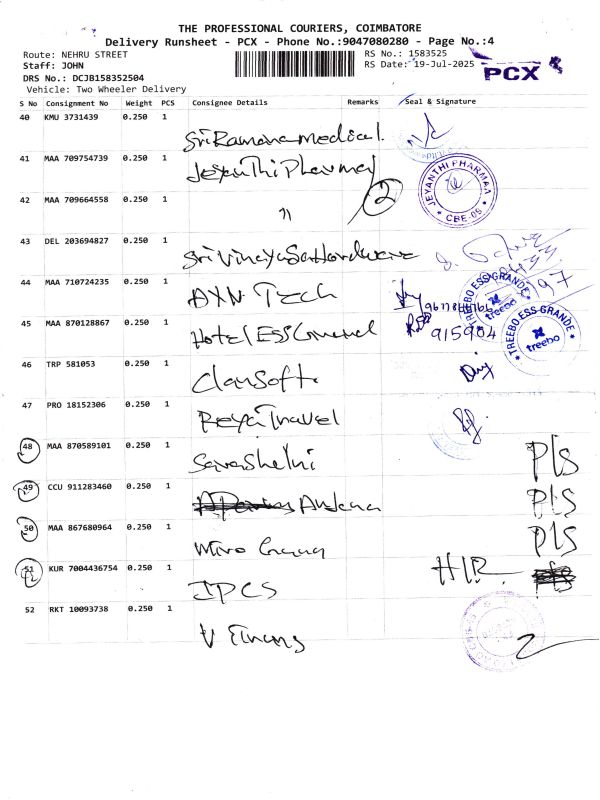 THE PROFESSIONAL COURIERS, COIMBATORE
Delivery Runsheet - PCX - Phone No.:9047080280 - Page No.:4
Route: NEHRU STREET
RS No.: 1583525
Staff: JOHN
RS Date: 19-Jul-2025
PCX
DRS No.: DCJB158352504
Vehicle: Two Wheeler Delivery
S No Consignment No Weight PCS Consignee Details Remarks Seal & Signature
40 KMU 3731439 0.250 1 Sri Ramana medical
41 MAA 709754739 0.250 1 Jeyanthi Pharmay
JEYANTHI PHARMAA
CBE-05
42 MAA 709664558 0.250 1 " 2
43 DEL 203694827 0.250 1 Sri Vinaya Hardware
44 MAA 710724235 0.250 1 AXN Tech
TREEBO ESS GRANDE
treebo
45 MAA 870128867 0.250 1 Hotel ESS 915904
TREEBO ESS-GRANDE
treebo
46 TRP 581053 0.250 1
47 PRO 18152306 0.250 1 Reya Travel
48 MAA 870589101 0.250 1 Pls
49 CCU 911283460 0.250 1 Pls
50 MAA 867680964 0.250 1 Pls
51 KUR 7004436754 0.250 1 JPCS
52 RKT 10093738 0.250 1